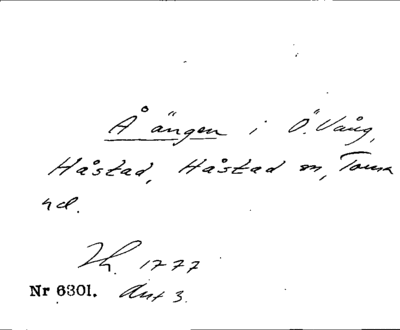 Å ängen i Ö. Vång,
Håstad, Håstad sn, Torna
hd.
Lh. 1777
Nr 6301. Akt 3.